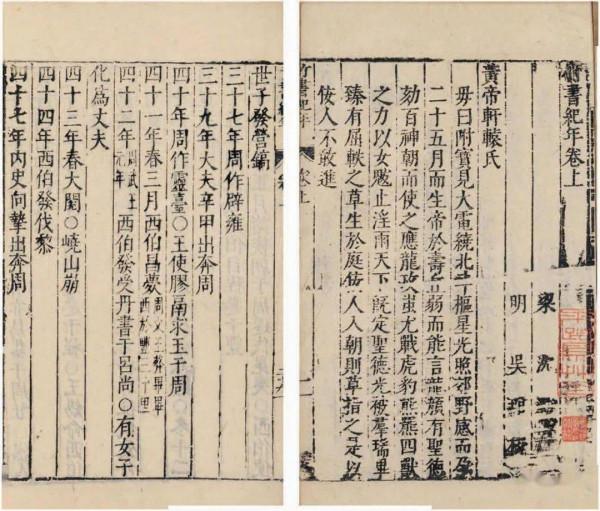 竹書紀年卷上
梁 沈
明 吳
黃帝軒轅氏
母曰附寶見大電繞北斗樞星光照郊野感而孕
二十五月而生帝於壽丘弱而能言龍顏有聖德
劾百神朝而使之應龍攻蚩尤戰虎豹熊羆四獸
之力以女魃止淫雨天下既定聖德光被羣瑞畢
臻有屈軼之草生於庭佞人入朝則草指之是以
佞人不敢進
竹書紀年 卷上
世子發營鎬
三十七年周作辟雍
三十九年大夫辛甲出奔周
四十年周作靈臺○王使膠鬲求玉于周
四十一年春三月西伯昌薨周文王葬畢西於豐三十里
四十二年周武王元年西伯發受丹書于呂尚○有女子
化為丈夫
四十三年春大閱○嶢山崩
四十四年西伯發伐黎
四十七年內史向摯出奔周